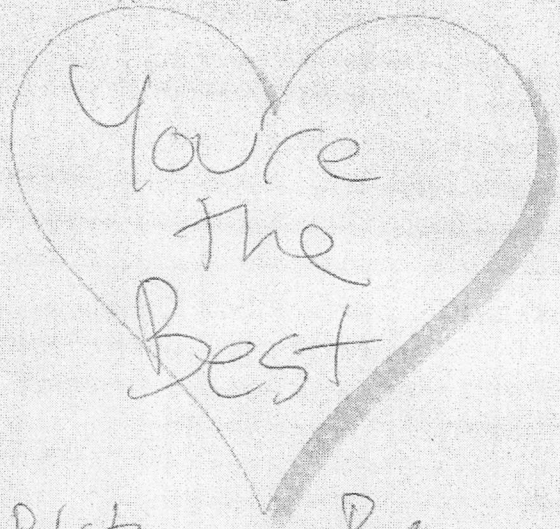 You're
the
Best